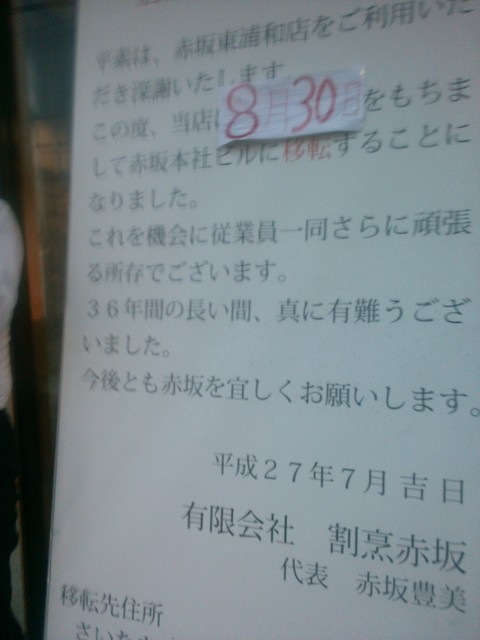 平素は、赤坂東浦和店をご利用いた
だき深謝いたします
この度、当店は8月30日をもちま
して赤坂本社ビルに移転することに
なりました。
これを機会に従業員一同さらに頑張
る所存でございます。
36年間の長い間、真に有難うござ
いました。
今後とも赤坂を宜しくお願いします。
平成27年7月吉日
有限会社 割烹赤坂
代表 赤坂豊美
移転先住所
さいた